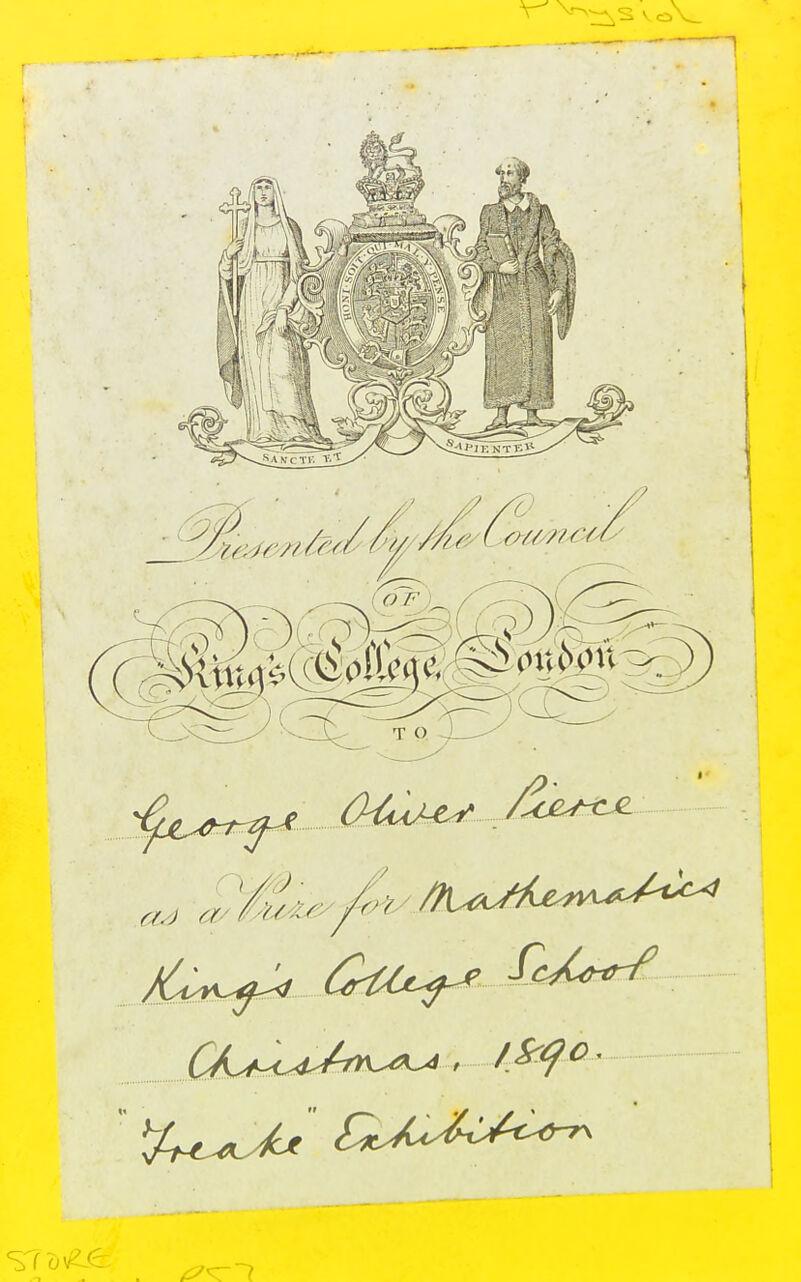 Physiol
HONI·SOIT·QUI·MAL·Y·PENSE
SANCTE ET
SAPIENTER
Presented by the Council
OF
King's College, London
TO
George Oliver Pierce
as a Prize for Mathematics
King's College School
Christmas, 1890.
"Freake" Exhibition
STORE